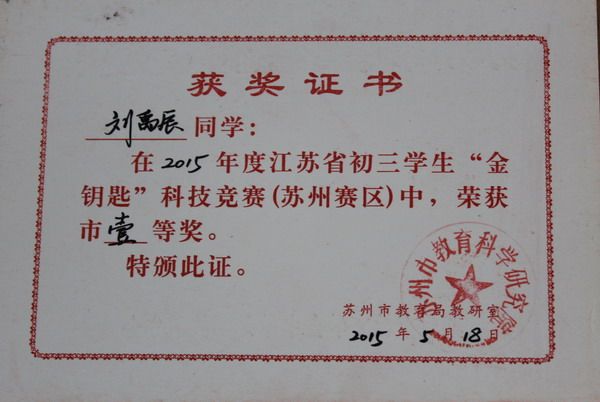 获奖证书
刘禹辰 同学：
在2015年度江苏省初三学生“金
钥匙”科技竞赛(苏州赛区)中，荣获
市壹等奖。
特颁此证。
苏州市教育科学研究院
苏州市教育局教研室
2015年5月18日